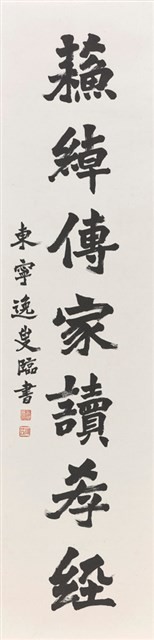 蘓綽傳家讀孝經
東寧逸叟臨書